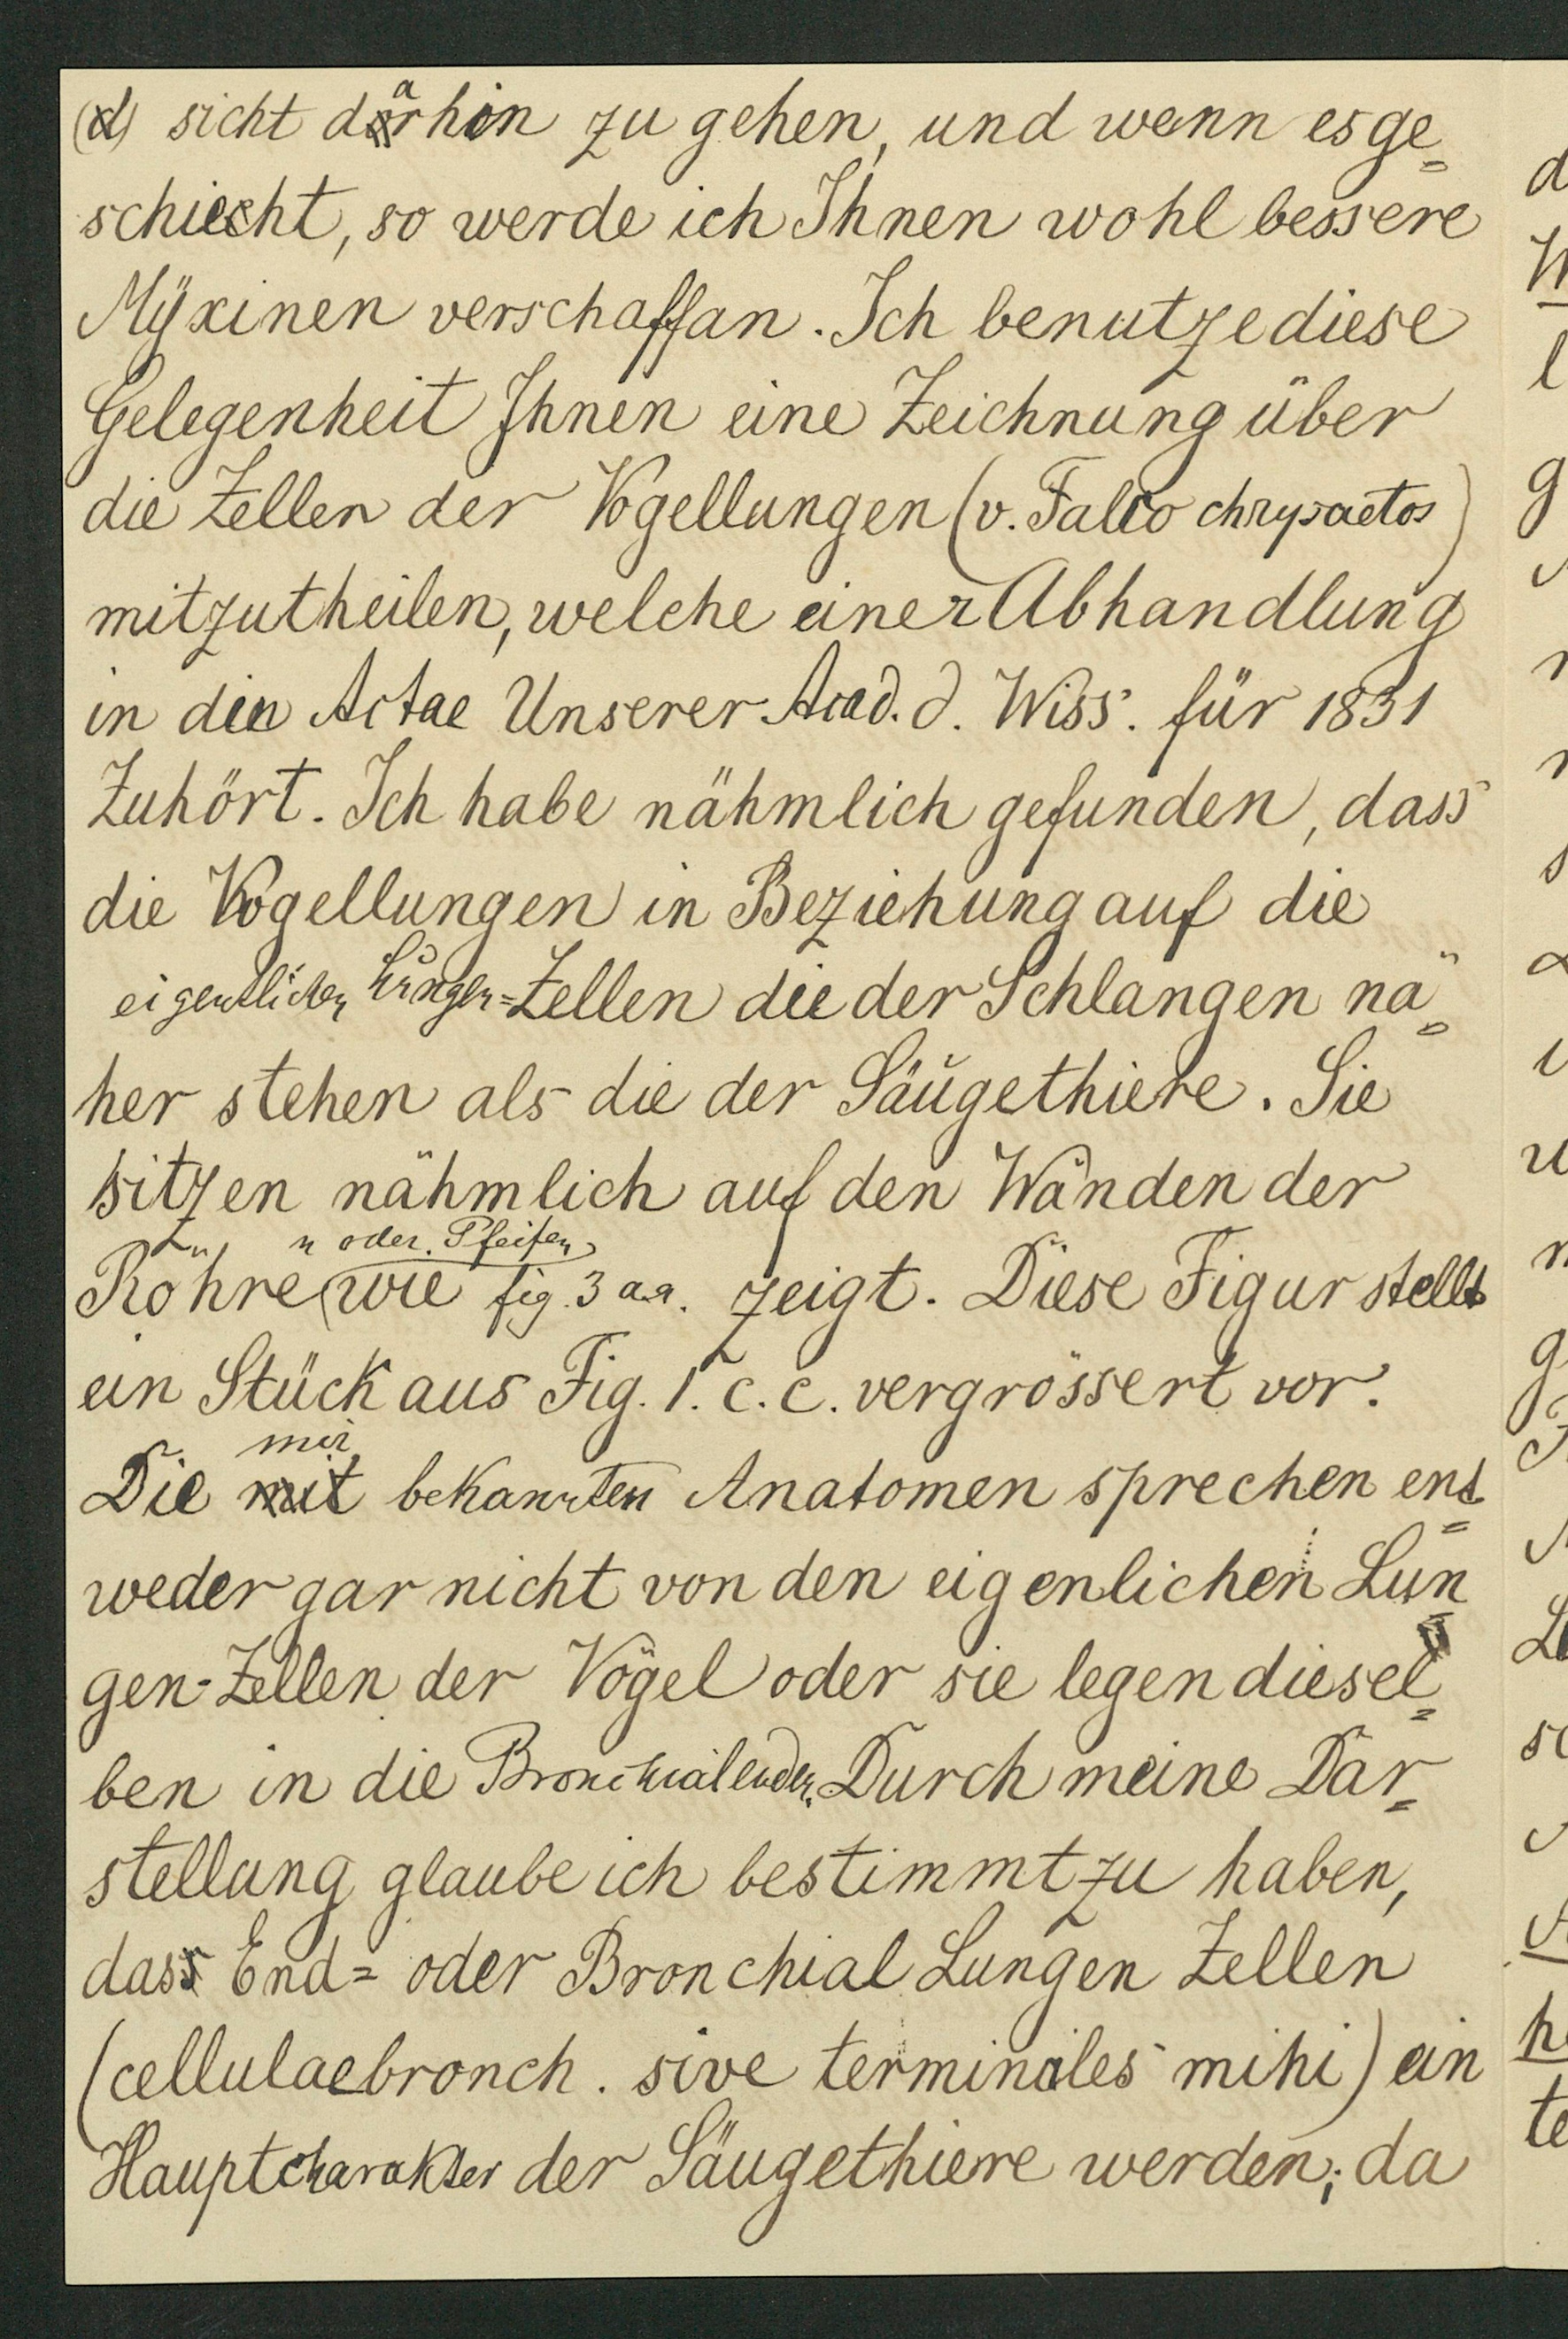 (d) sicht darhin zu gehen, und wenn es ge=
schiecht, so werde ich Ihnen wohl bessere
Mÿxinen verschaffan. Ich benutze diese
Gelegenheit Ihnen eine Zeichnung über
die Zellen der Vögellungen (v. Falco chrysaetos)
mitzutheilen, welche einer Abhandlung
in den Actae Unserer Acad. d. Wiss. für 1831
Zuhört. Ich habe nähmlich gefunden, dass
die Vogellungen in Beziehung auf die
eigentlichen Lungen=Zellen die der Schlangen nä=
her stehen als die der Säugethiere. Sie
sitzen nähmlich auf den Wänden der
n oder Pfeifen
Röhre (wie fig. 3 a.a. zeigt. Diese Figur stellt
ein Stück aus Fig. 1. c. c. vergrössert vor.
mir
Die mit bekannten Anatomen sprechen ent=
weder gar nicht von den eigenlichen Lun=
gen-Zellen der Vögel oder sie legen diesel=
ben in die Bronchialenden. Durch meine Dar=
stellung glaube ich bestimmt zu haben,
dass End= oder Bronchial Lungen Zellen
(cellulae bronch. sive terminales mihi) ein
Hauptcharakter der Säugethiere werden; da